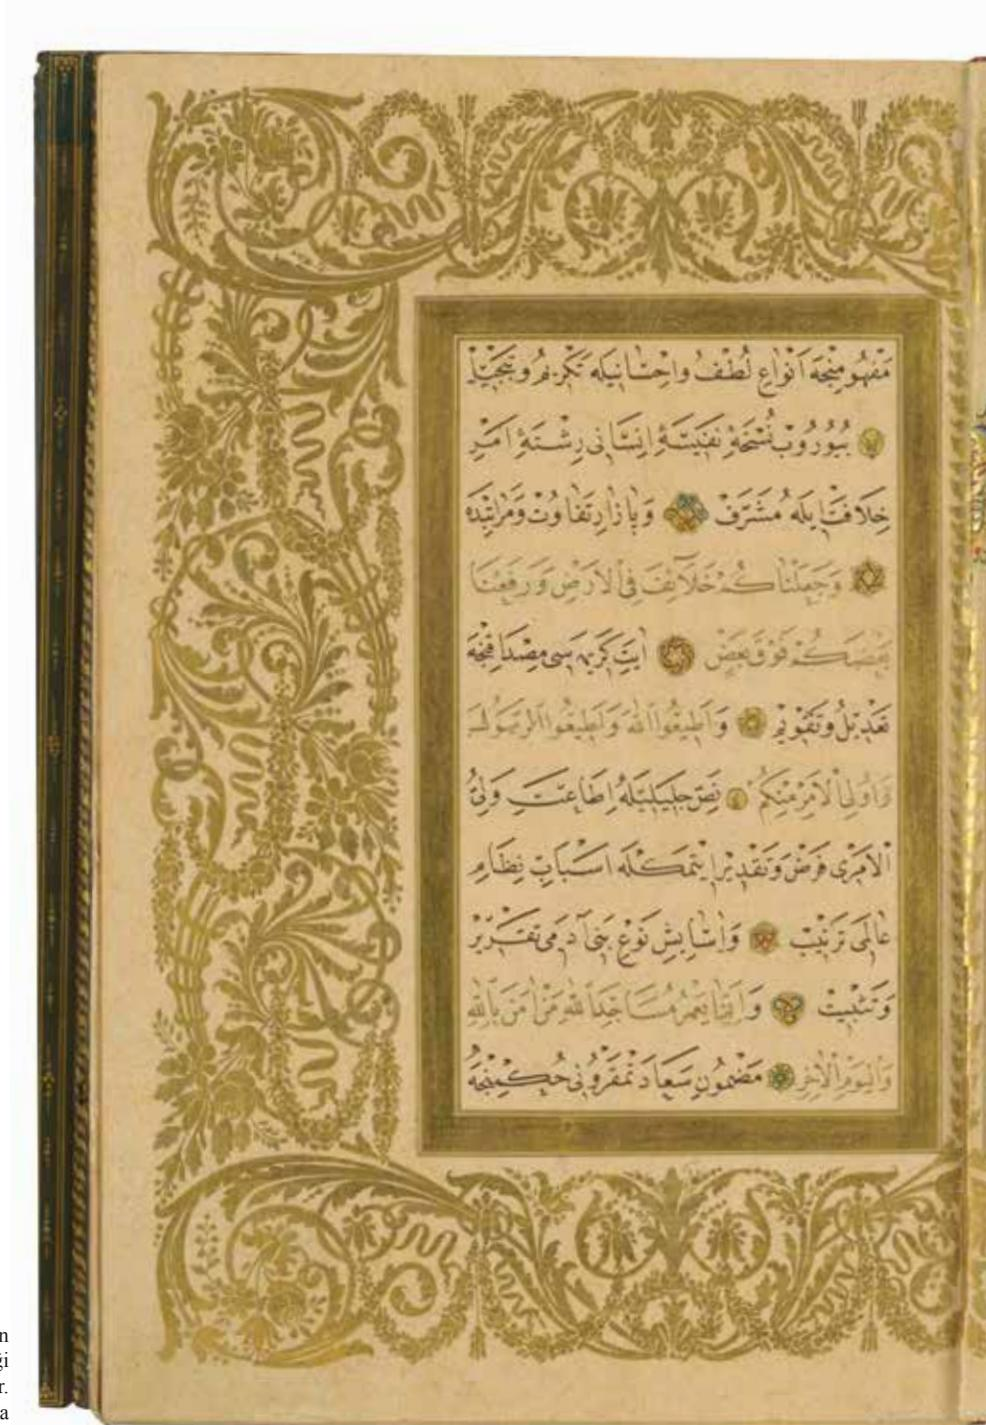 مَفْهُومِنْجَه اَنْوَاعِ لُطْفُ واِحْسَانِيلَه تَكْرِيمُ وتَبْجِيلْ
بُيُورُوبْ نُسْخَهٔ نَفِيسَهٔ اِنْسَانى رِشْتَهٔ اَمْرِ
خِلَافَتْ اِيلَه مُشَرَّفْ وَ تَفَاوُتْ وَمَرَاتِبْدَه
وَجَعَلْنَاكُمْ خَلَآئِفَ فِي الْاَرْضِ وَرَفَعْنَا
بَعْضَكُمْ فَوْقَ بَعْضٍ اٰيَتِ كَرِيمَه سى مِصْدَاقِنْجَه
تَعْدِيلُ وتَقْوِيمْ وَاَطِيعُوا اللّٰهَ وَاَطِيعُوا الرَّسُولَ
وَاُولِي الْاَمْرِ مِنْكُمْ نَصِّ جَلِيلِيلَه اِطَاعَتِ وَلِيُّ
الْاَمْرِى فَرْضُ وَتَقْدِيرْ اِيتْمَكْلَه اَسْبَابِ نِظَامِ
عَالَمى تَرْتِيبْ وَاٰسَايِشِ نَوْعِ بَنِى اٰدَمى تَقْرِيرْ
وَتَثْبِيتْ وَاِنَّمَا يَعْمُرُ مَسَاجِدَ اللّٰهِ مَنْ اٰمَنَ بِاللّٰهِ
وَالْيَوْمِ الْاٰخِرِ مَضْمُونِ سَعَادَتْمَقْرُونى حُكْمِنْجَه
n
ği
r.
a